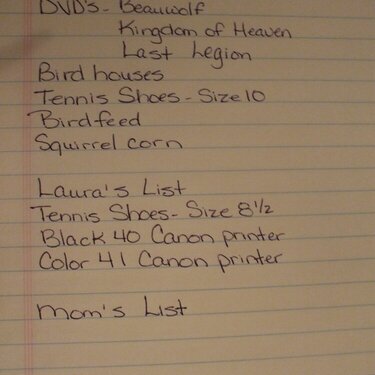 DVD's - Beauwolf
Kingdom of Heaven
Last Legion
Bird houses
Tennis Shoes - Size 10
Birdfeed
Squirrel corn
Laura's List
Tennis Shoes - Size 8 1/2
Black 40 Canon printer
Color 41 Canon printer
Mom's List